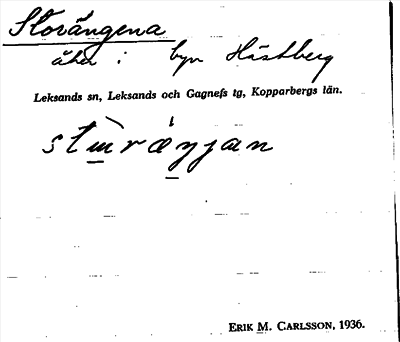 Storängena
åker i byn Hästberg
Leksands sn, Leksands och Gagnefs tg, Kopparbergs län.
ERIK M. CARLSSON, 1936.